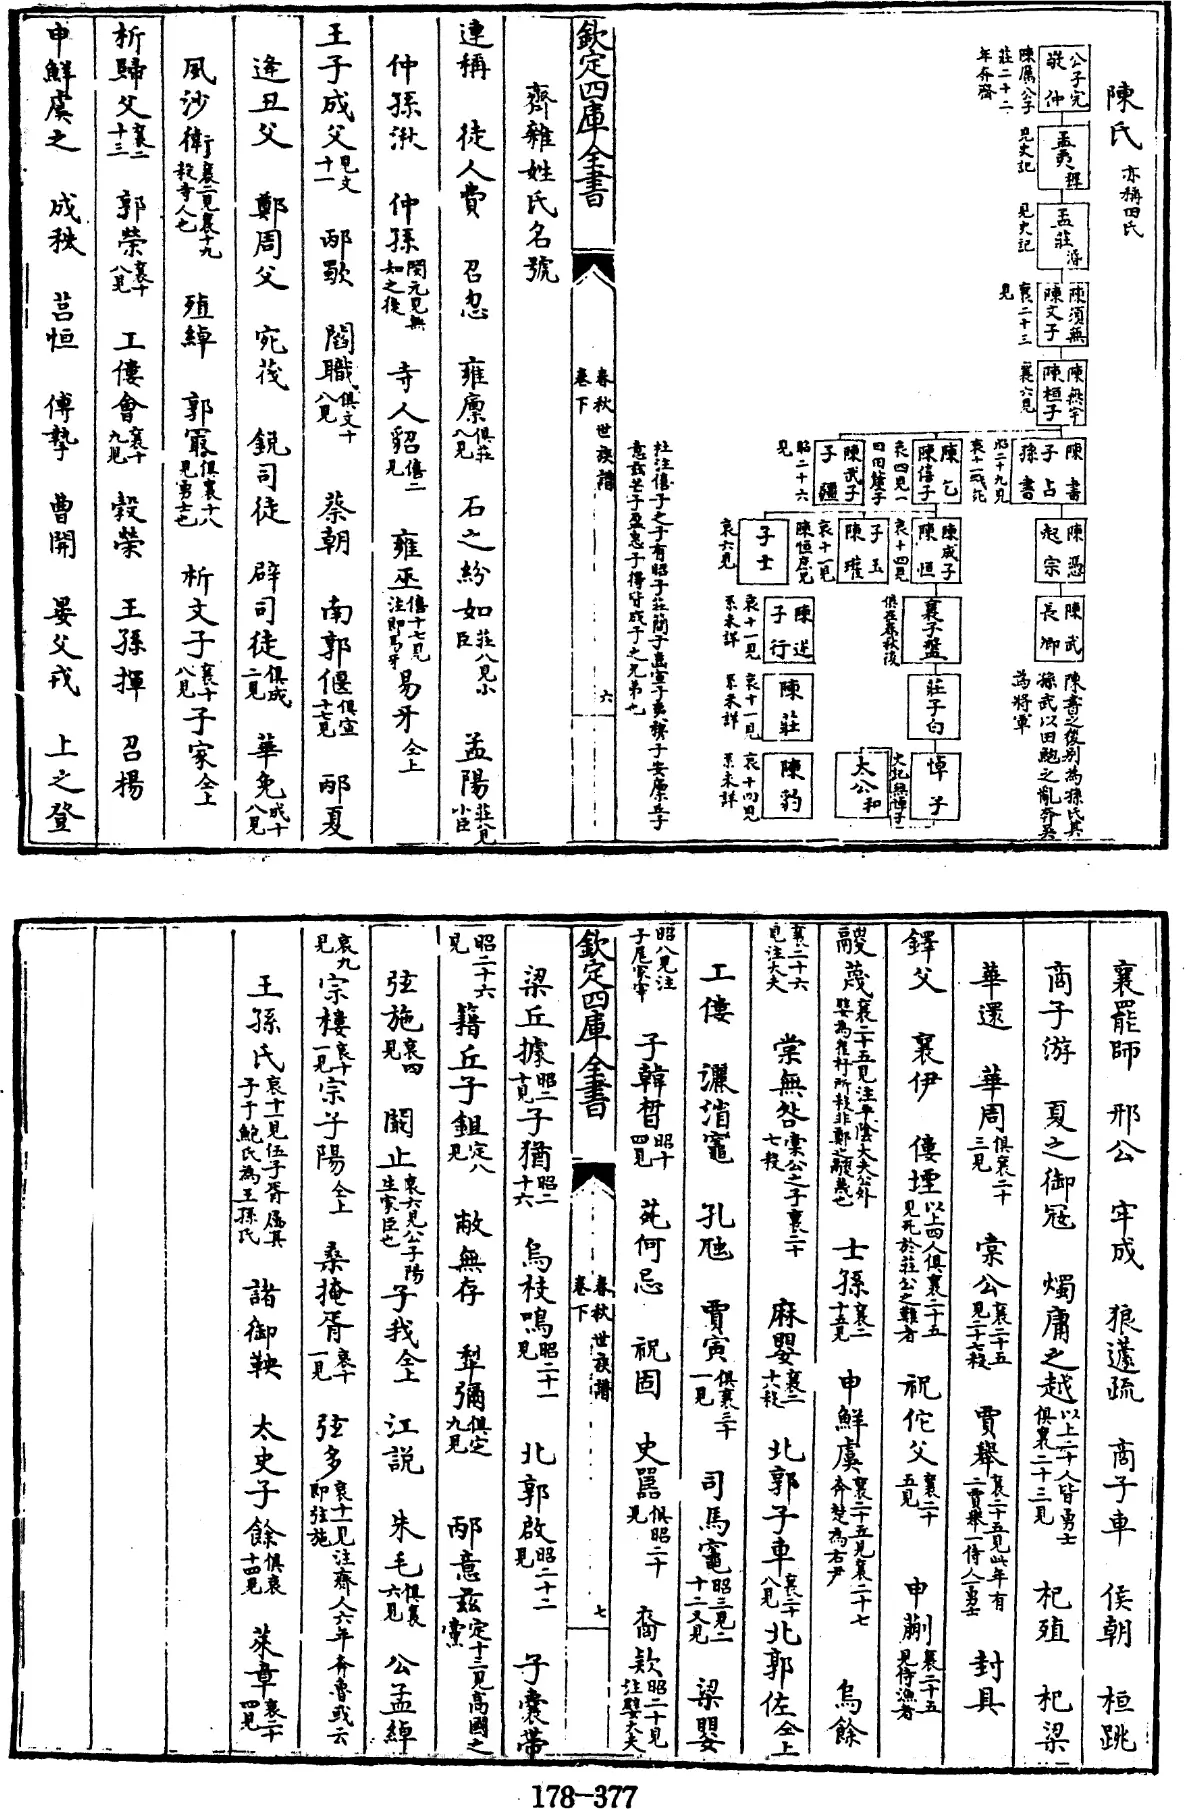 陳氏 亦稱田氏
公子完 敬仲
陳厲公子
莊二十二
年奔齊
孟夷 穉
見史記
孟莊 湣
見史記
陳須無 陳文子
襄二十三
見
陳無宇 陳桓子
襄六見
陳書 子占 孫書
昭二十九見
哀十一戰死
陳憑 起宗
陳武 長卿
陳書之後别為孫氏其
孫武以田鮑之亂奔吳
為將軍
陳乞 陳僖子
哀四見一
曰田釐子
陳武子 子疆
昭二十六
見
陳成子 陳恒
哀十四見
子玉 陳瓘
陳恒庶兄
哀十一見
子士
哀六見
襄子盤
俱在春秋後
莊子白
悼子
史記無悼子
太公和
陳逆 子行
哀十一見
系未詳
陳莊
哀十一見
系未詳
陳豹
哀十四見
系未詳
杜注僖子之子有昭子莊簡子齒宣子夷穆子安廪丘子
意兹芒子盈惠子得皆成子之兄弟也
欽定四庫全書
春秋世族譜
卷下
六
齊雜姓氏名號
連稱 徒人費 召忽 雍廪俱莊八見 石之紛如莊八見小臣 孟陽莊八見小臣
仲孫湫 仲孫閔元見無知之後 寺人貂僖二見 雍巫僖十七見注即易牙 易牙仝上
王子成父見文十一 邴歜 閻職俱文十八見 蔡朝 南郭偃俱宣十七見 邴夏
逄丑父 鄭周父 宛茷 鋭司徒 辟司徒俱成二見 華免成十八見
夙沙衛襄二見襄十九殺寺人也 殖綽 郭最俱襄十八見勇士也 析文子襄十八見 子家仝上
析歸父襄二十三 郭榮襄十八見 工僂會襄十九見 穀榮 王孫揮 召楊
申鮮虞之 成秩 莒恒 傅摯 曹開 晏父戎 上之登
襄罷師 邢公 牢成 狼蘧疏 商子車 侯朝 桓跳
商子游 夏之御寇 燭庸之越以上二十人皆勇士俱襄二十三見 杞殖 杞梁
華還 華周俱襄二十三見 棠公襄二十五見二十七殺 賈舉襄二十五見此年有二賈舉一侍人一勇士 封具
鐸父 襄伊 僂堙以上四人俱襄二十五見死於莊公之難者 祝佗父襄二十五見 申蒯襄二十五見侍漁者
鬷蔑襄二十五見注平陰大夫公外嬖為崔杼所殺非鄭之鬷蔑也 士孫襄二十五見 申鮮虞襄二十五見襄二十七奔楚為右尹 烏餘
襄二十六見注大夫 棠無咎棠公之子襄二十七殺 麻嬰襄二十六殺 北郭子車襄二十八見 北郭佐仝上
工僂 灑渻竈 孔虺 賈寅俱襄三十一見 司馬竈昭三見二十二又見 梁嬰
昭八見注子尾家宰 子韓晳昭十四見 苑何忌 祝固 史嚚俱昭二十見 裔款昭二十見注嬖大夫
欽定四庫全書
春秋世族譜
卷下
七
梁丘據昭二十見 子猶昭二十六 烏枝鳴昭二十一見 北郭啟昭二十二見 子囊帶
昭二十六見 籍丘子鉏定八見 敝無存 犁彌俱定九見 邴意兹定十三見高國之黨
弦施哀四見 闞止哀六見公子陽生家臣也 子我仝上 江説 朱毛俱哀六見 公孟綽
哀九見 宗樓哀十一見 宗子陽仝上 桑掩胥哀十一見 弦多哀十一見注齊人六年奔魯或云即弦施
王孫氏哀十一見伍子胥屬其子于鮑氏為王孫氏 諸御鞅 太史子餘俱哀十四見 萊章哀二十四見
178—377